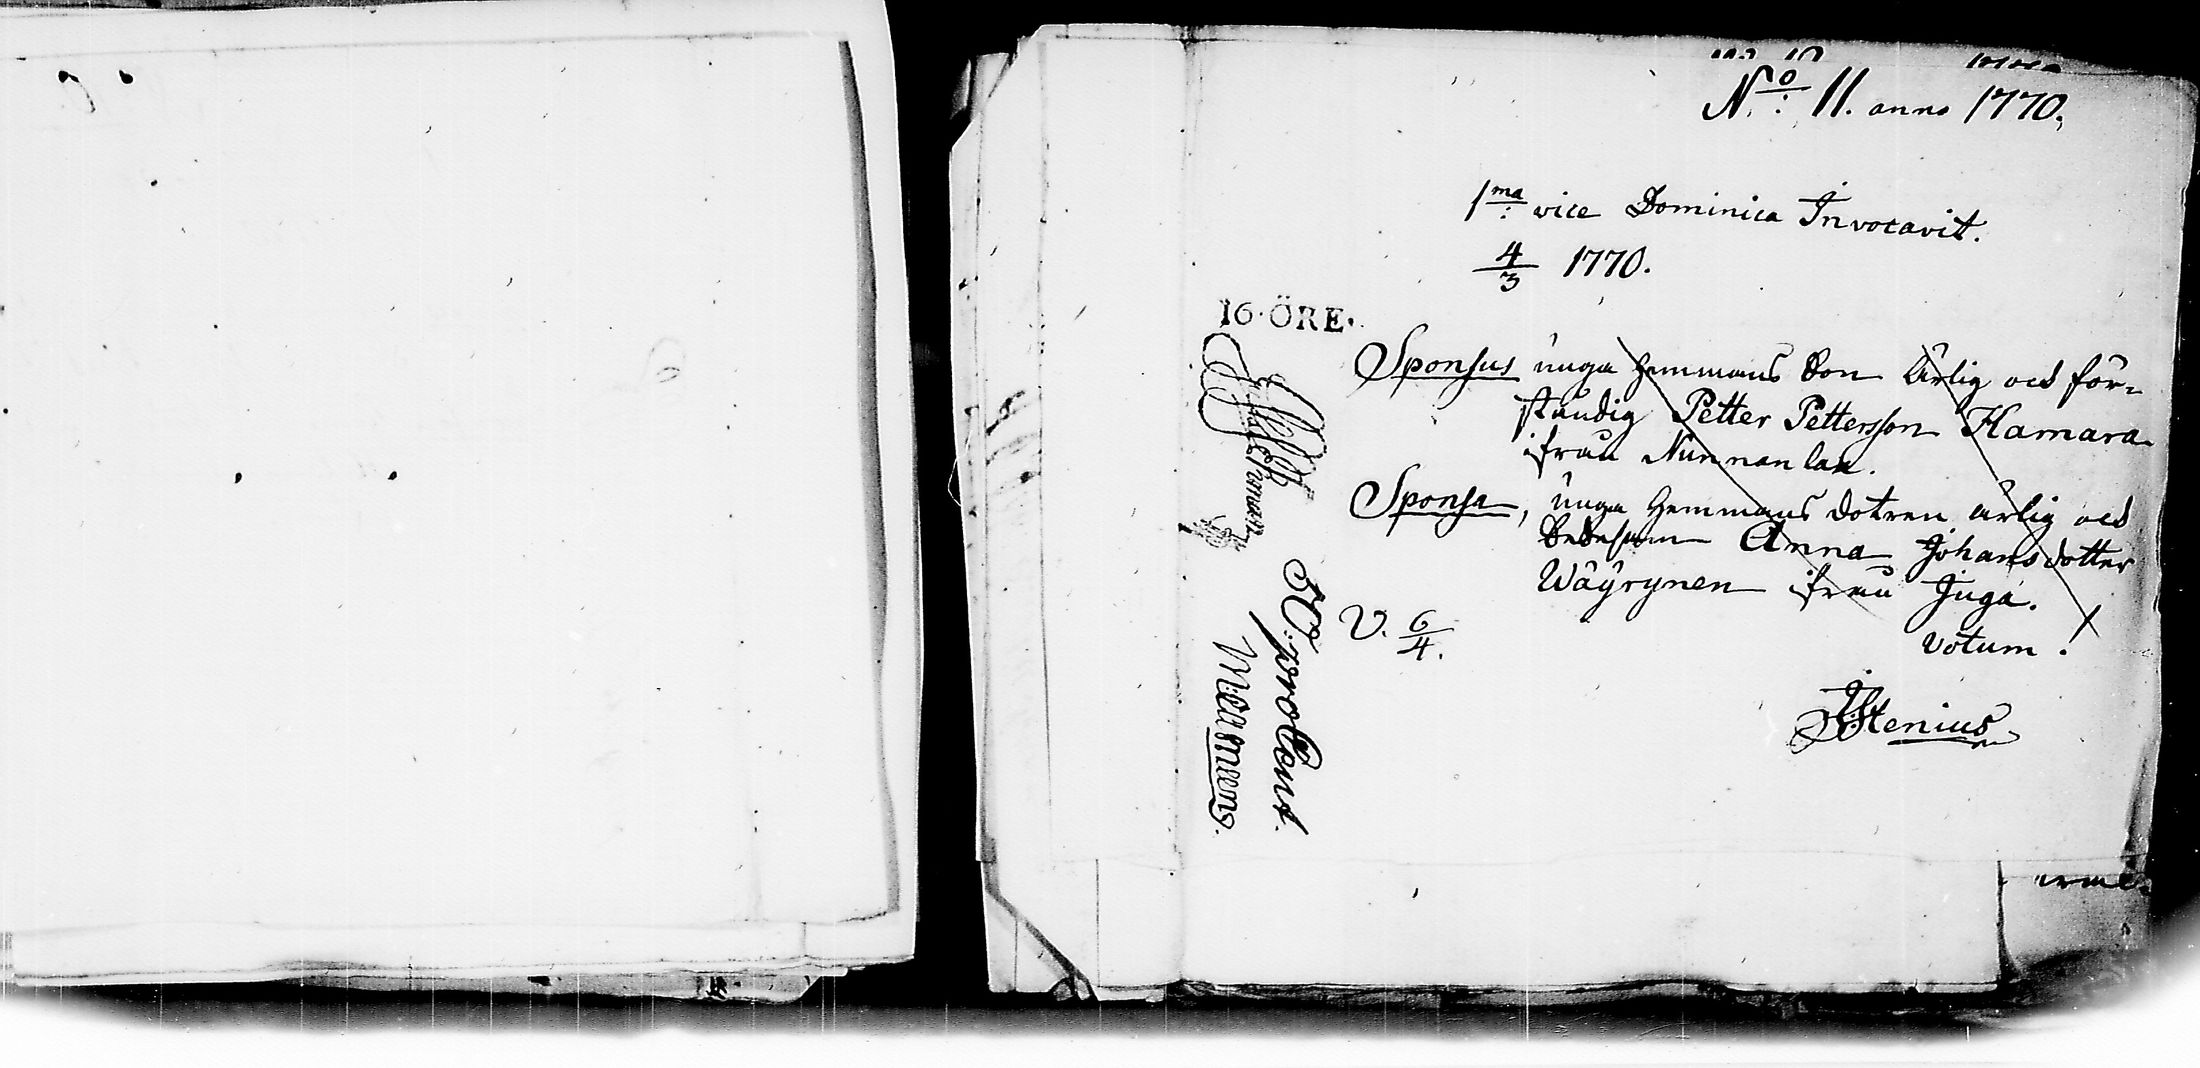 No: 11. anno 1770.
1ma: vice Dominica Invocavit.
4/3 1770.
16·ÖRE·
Sponsus unga hemmans Son ärlig och för-
ståndig Petter Pettersson Kamara
ifrån Nunnanlax.
Sponsa, unga hemmans dotren ärlig och
Bedesam Anna Johansdotter
Wäyrynen ifrån Juga.
V. 6/4.
Votum!
JStenius